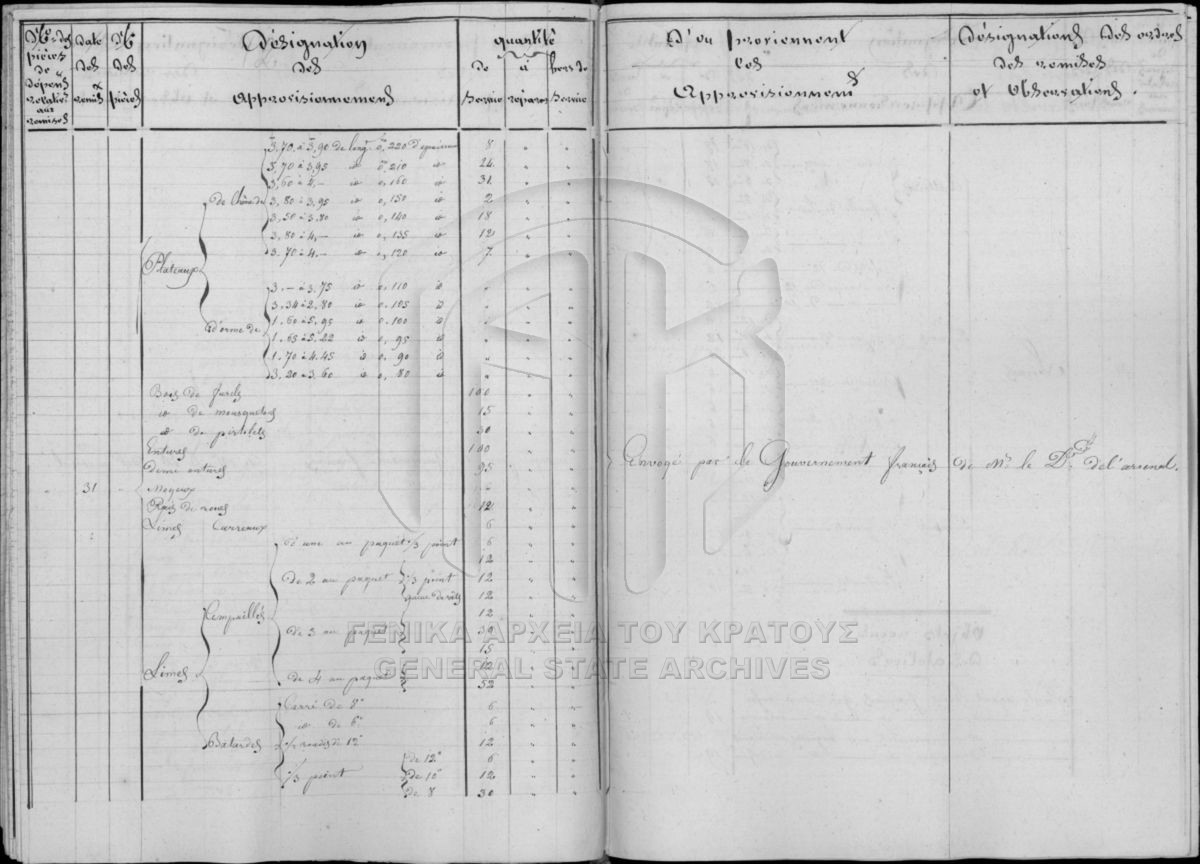 Nos des pièces de dépenses relatives aux remises
Date des remises
No des pièces
Désignation des Approvisionnements
quantité
de Service
à réparer
hors de Service
D'où proviennent les Approvisionnemts
Désignations des ordres des remises et Observations.
3,70 à 3,90 de longr 0,220 d'épaisseur 8 " "
3,70 à 3,95 id 0,210 id 24 " "
3,60 à 4,— id 0,160 id 31 " "
de chêne de 3,80 à 3,95 id 0,150 id 2 " "
3,50 à 3,80 id 0,140 id 18 " "
3,80 à 4,— id 0,135 id 12 " "
3,70 à 4,— id 0,120 id 7 " "
Plateaux
3,— à 3,75 id 0,110 id " " "
3,34 à 2,80 id 0,105 id " " "
1,60 à 5,95 id 0,100 id " " "
d'orme de
1,65 à 5,22 id 0, 95 id " " "
1,70 à 4,45 id 0, 90 id " " "
3,20 à 3,60 id 0, 80 id " " "
Bois de fusils 100 " "
id de mousquetons 15 " "
id de pistolets 30 " "
Entures 100 " "
Envoyé par le Gouvernement français de Mr le Dr de l'arsenal.
Demi entures 95 " "
" 31 " Moyeux " " "
Rais de roues 12 " "
Limes Carreaux 6 " "
d'une au paquet 1/3 point 6 " "
12 " "
de 2 au paquet 1/3 point 12 " "
queue de rats 12 " "
Empaillées 12 " "
de 3 au paquet 30 " "
15 " "
12 " "
Limes de 4 au paquet 52 " "
Carré de 8° 6 " "
id de 6° 6 " "
Batardes 1/2 rondes de 12° 12 " "
de 12° 6 " "
1/3 point de 10° 12 " "
de 8 30 " "
ΓΕΝΙΚΑ ΑΡΧΕΙΑ ΤΟΥ ΚΡΑΤΟΥΣ
GENERAL STATE ARCHIVES